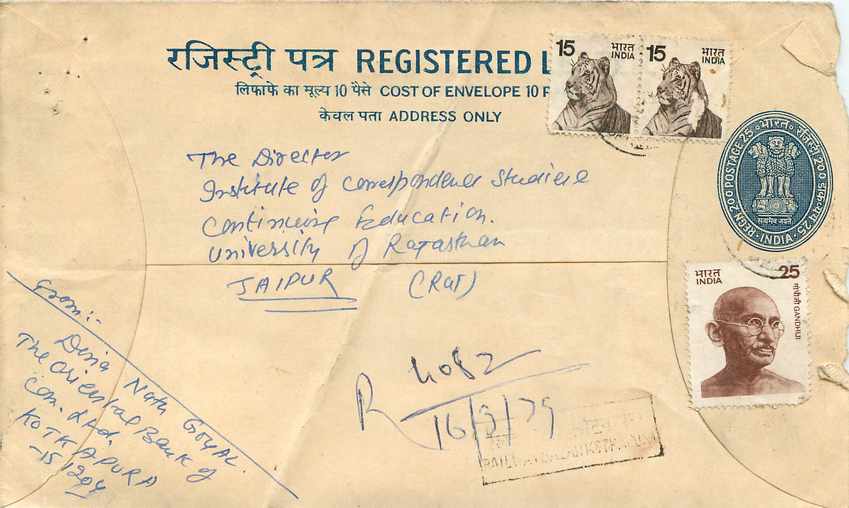 रजिस्ट्री पत्र REGISTERED L
लिफाफे का मूल्य 10 पैसे COST OF ENVELOPE 10 P
केवल पता ADDRESS ONLY
15 भारत INDIA
15 भारत INDIA
REGN 200 POSTAGE 25 भारत रजिस्ट्री 200 डाक 25 INDIA
सत्यमेव जयते
The Director
Institute of Correspondence Studies &
Continuing Education.
University of Rajasthan
JAIPUR (Raj)
भारत INDIA 25
गांधीजी GANDHIJI
From:-
Dina Nath GOYAL
The Oriental Bank of
Com. Ltd.
KOTKAPURA
-151204
R 4082
16/3/79